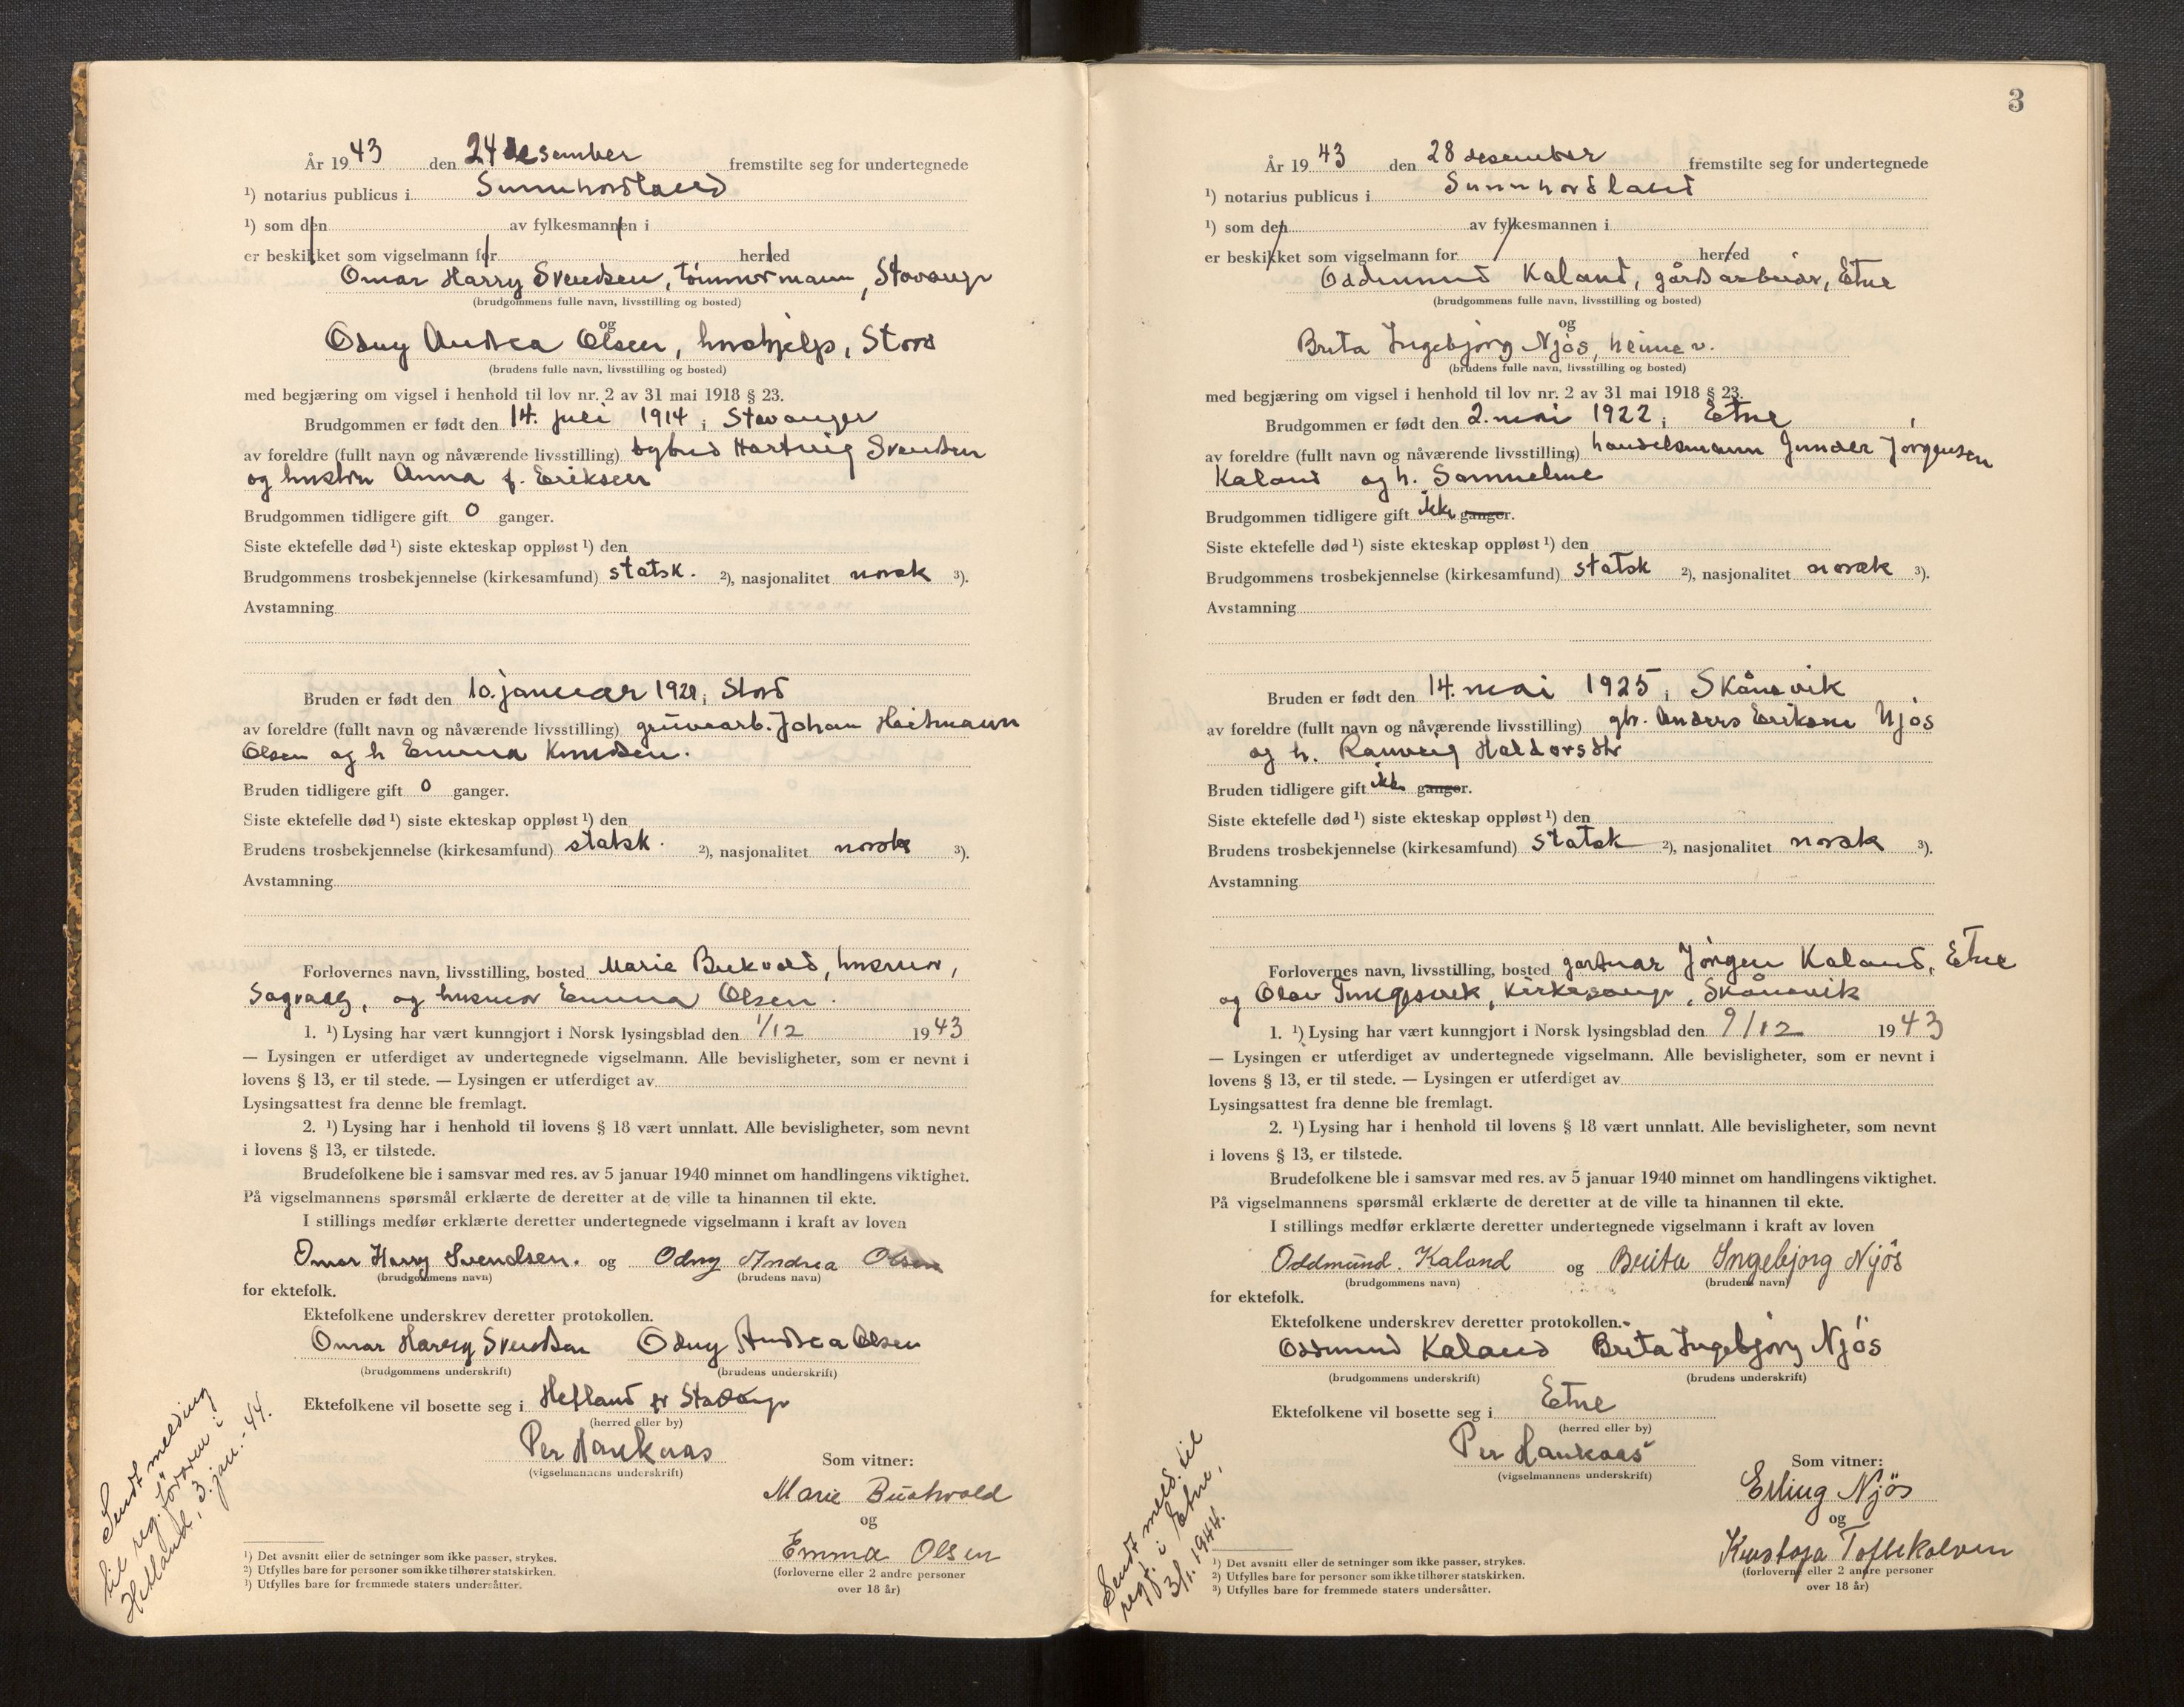 År 1943 den 24 desember fremstilte seg for undertegnede
¹) notarius publicus i Sunnhordland
¹) som den av fylkesmannen i
er beskikket som vigselmann for herred
Omar Harry Svendsen, tømmermann, Stavanger
(brudgommens fulle navn, livsstilling og bosted)
og
Odny Andrea Olsen, hushjelp, Stord
(brudens fulle navn, livsstilling og bosted)
med begjæring om vigsel i henhold til lov nr. 2 av 31 mai 1918 § 23.
Brudgommen er født den 14. juli 1914 i Stavanger
av foreldre (fullt navn og nåværende livsstilling) bybud Hartvig Svendsen
og hustru Anna f. Eriksen
Brudgommen tidligere gift 0 ganger.
Siste ektefelle død ¹) siste ekteskap oppløst ¹) den
Brudgommens trosbekjennelse (kirkesamfund) statsk. ²), nasjonalitet norsk ³).
Avstamning
Bruden er født den 10. januar i Stord
av foreldre (fullt navn og nåværende livsstilling) gruvearb. Johan Heitmann
Olsen og h Emma Knudsen.
Bruden tidligere gift 0 ganger.
Siste ektefelle død ¹) siste ekteskap oppløst ¹) den
Brudens trosbekjennelse (kirkesamfund) statsk. ²), nasjonalitet norsk ³).
Avstamning
Forlovernes navn, livsstilling, bosted Marie husmor,
Sagvaag, og husmor Emma Olsen.
1. ¹) Lysing har vært kunngjort i Norsk lysingsblad den 1/12 1943
— Lysingen er utferdiget av undertegnede vigselmann. Alle bevisligheter, som er nevnt i
lovens § 13, er til stede. — Lysingen er utferdiget av
Lysingsattest fra denne ble fremlagt.
2. ¹) Lysing har i henhold til lovens § 18 vært unnlatt. Alle bevisligheter, som nevnt
i lovens § 13, er tilstede.
Brudefolkene ble i samsvar med res. av 5 januar 1940 minnet om handlingens viktighet.
På vigselmannens spørsmål erklærte de deretter at de ville ta hinannen til ekte.
I stillings medfør erklærte deretter undertegnede vigselmann i kraft av loven
Omar Harry Svendsen. og Odny Andrea Olsen
(brudgommens navn) (brudens navn)
for ektefolk.
Ektefolkene underskrev deretter protokollen.
Omar Harry Svendsen Odny Andrea Olsen
(brudgommens underskrift) (brudens underskrift)
Ektefolkene vil bosette seg i Hetland pr Stavanger
(herred eller by)
Per Haukaas
(vigselmannens underskrift)
Som vitner:
Marie
og
Emma Olsen
(forloverne eller 2 andre personer
over 18 år)
Sendt melding
til reg.föraren i
Hetland, 3. jan. - 44.
¹) Det avsnitt eller de setninger som ikke passer, strykes.
²) Utfylles bare for personer som ikke tilhører statskirken.
³) Utfylles bare for fremmede staters undersåtter.
3
År 1943 den 28 desember fremstilte seg for undertegnede
¹) notarius publicus i Sunnhordland
¹) som den av fylkesmannen i
er beskikket som vigselmann for herred
Oddmund Kaland, gårdsarbeider, Etne
(brudgommens fulle navn, livsstilling og bosted)
og
Brita Ingebjörg Njös, heime v.
(brudens fulle navn, livsstilling og bosted)
med begjæring om vigsel i henhold til lov nr. 2 av 31 mai 1918 § 23.
Brudgommen er født den 2. mai 1922 i Etne
av foreldre (fullt navn og nåværende livsstilling) handelsmann Gunder Jörgensen
Kaland og h. Samueline
Brudgommen tidligere gift ikke ganger.
Siste ektefelle død ¹) siste ekteskap oppløst ¹) den
Brudgommens trosbekjennelse (kirkesamfund) statsk ²), nasjonalitet norsk ³).
Avstamning
Bruden er født den 14. mai 1925 i Skånevik
av foreldre (fullt navn og nåværende livsstilling) gbr. Anders Eriksen Njös
og h. Ranveig Haldorsdtr
Bruden tidligere gift ikke ganger.
Siste ektefelle død ¹) siste ekteskap oppløst ¹) den
Brudens trosbekjennelse (kirkesamfund) statsk ²), nasjonalitet norsk ³).
Avstamning
Forlovernes navn, livsstilling, bosted gartnar Jörgen Kaland, Etne
og Olav kirkesanger, Skånevik
1. ¹) Lysing har vært kunngjort i Norsk lysingsblad den 9/12 1943
— Lysingen er utferdiget av undertegnede vigselmann. Alle bevisligheter, som er nevnt i
lovens § 13, er til stede. — Lysingen er utferdiget av
Lysingsattest fra denne ble fremlagt.
2. ¹) Lysing har i henhold til lovens § 18 vært unnlatt. Alle bevisligheter, som nevnt
i lovens § 13, er tilstede.
Brudefolkene ble i samsvar med res. av 5 januar 1940 minnet om handlingens viktighet.
På vigselmannens spørsmål erklærte de deretter at de ville ta hinannen til ekte.
I stillings medfør erklærte deretter undertegnede vigselmann i kraft av loven
Oddmund. Kaland og Brita Ingebjörg Njös
(brudgommens navn) (brudens navn)
for ektefolk.
Ektefolkene underskrev deretter protokollen.
Oddmund Kaland Brita Ingebjörg Njös
(brudgommens underskrift) (brudens underskrift)
Ektefolkene vil bosette seg i Etne
(herred eller by)
Per Haukaas
(vigselmannens underskrift)
Som vitner:
Erling Njös
og
Toftekalven
(forloverne eller 2 andre personer
over 18 år)
Sendt meld. til
regf. i Etne,
3/1. 1944.
¹) Det avsnitt eller de setninger som ikke passer, strykes.
²) Utfylles bare for personer som ikke tilhører statskirken.
³) Utfylles bare for fremmede staters undersåtter.